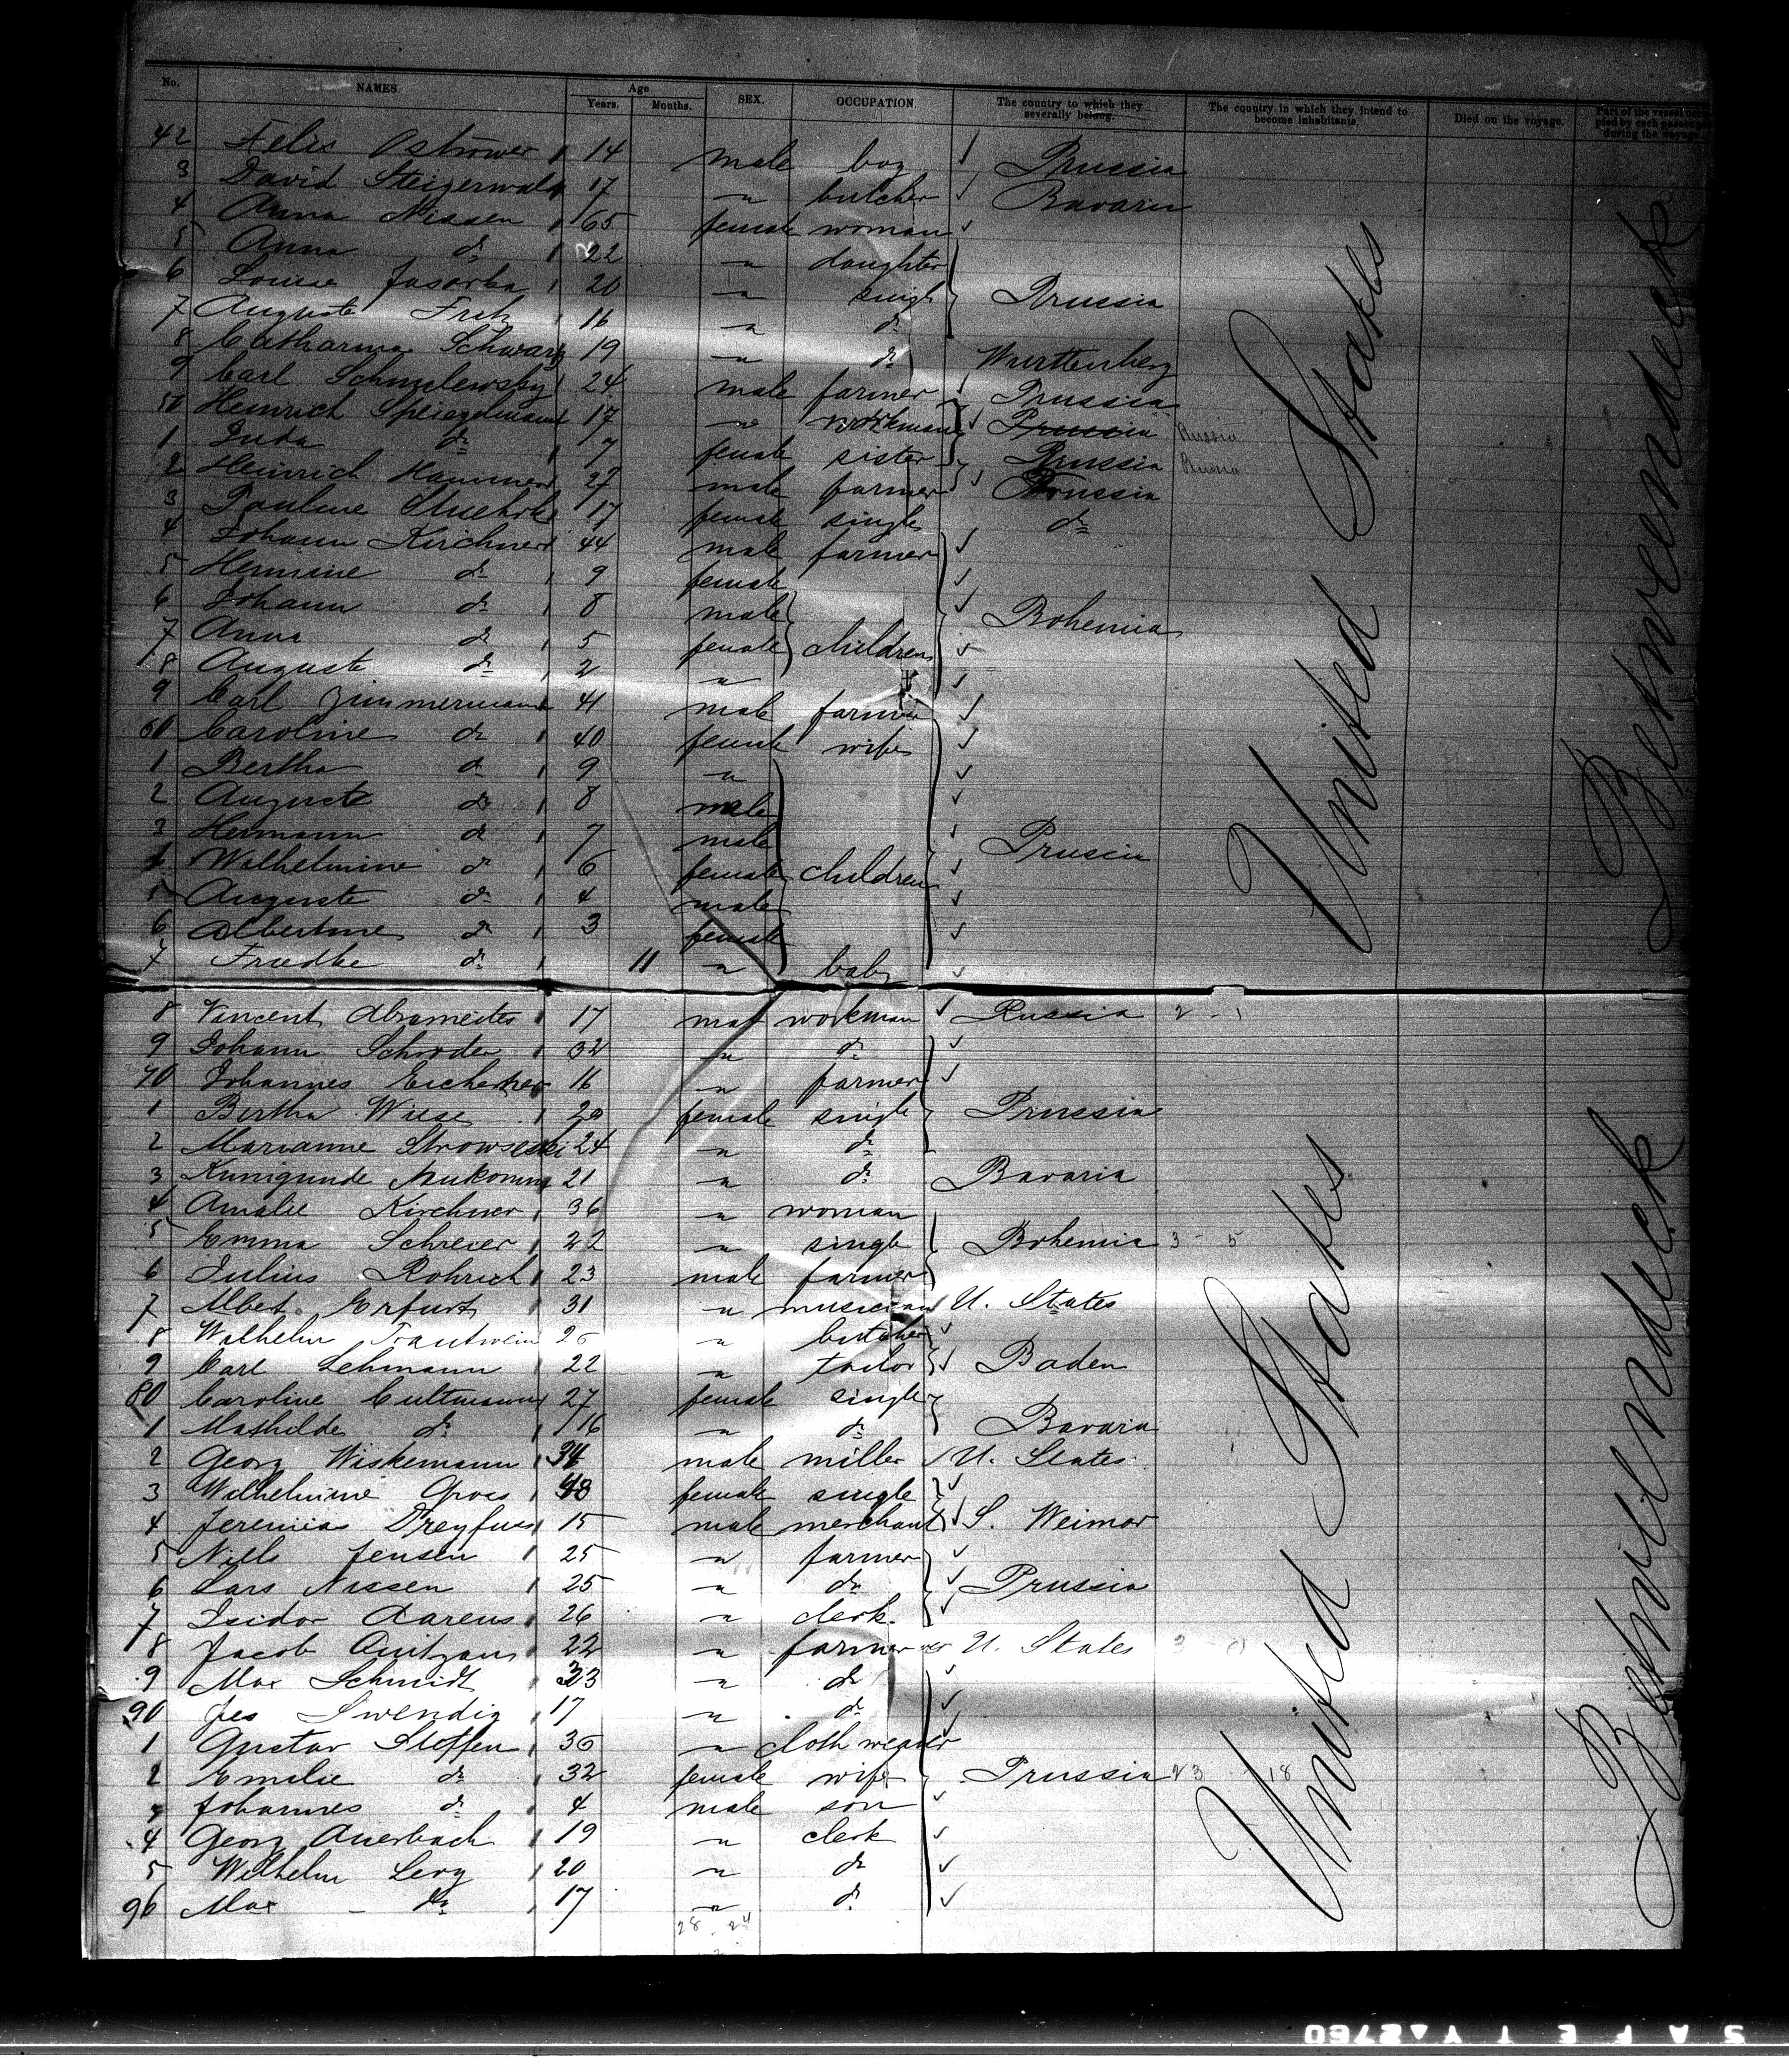 No. NAMES. Age Years. Months. SEX. OCCUPATION. The country to which they severally belong. The country in which they intend to become inhabitants. Died on the voyage. Part of the vessel occupied by each passenger during the voyage.
42 Felix Ostrower 14 male boy Prussia
3 David Steigerwald 17 " butcher Bavaria
4 Anna Nissen 65 female woman
5 Anna do 22 " daughter
6 Louise 20 " single Prussia
7 Auguste 16 " do
8 Catharina Schwarz 19 " do Wurttenberg
9 Carl Schmulewsky 24 male farmer Prussia
50 Heinrich Speiegelmann 17 " workman Prussia Russia
1 Juda do 7 female sister Prussia Russia
2 Heinrich Hammer 27 male farmer Prussia
3 Pauline 17 female single do
4 Johann Kirchner 44 male farmer
5 Hermine do 9 female
6 Johann do 8 male Bohemia
7 Anna do 5 female children
8 Auguste do 2 "
9 Carl Zimmermann 41 male farmer
60 Caroline do 40 female wife
1 Bertha do 9 "
2 Auguste do 8 male
3 Hermann do 7 male Prussia
4 Wilhelmine do 6 female children
5 Auguste do 4 male
6 Albertine do 3 female
7 do 11 " baby
8 Vincent 17 male workman Russia 2 - 1
9 Johann Schroder 32 " do
70 Johannes 16 " farmer
1 Bertha Wiese 20 female single Prussia
2 Marianne 24 " do
3 Kunigunde 21 " do Bavaria
4 Amalie Kirchner 36 " woman
5 Emma Schreier 22 " single Bohemia 3 - 5
6 Julius Rohrich 23 male farmer
7 Albet Erfurt 31 " musician U. States
8 Wilhelm Trautwein 26 " butcher
9 Carl Lehmann 22 " tailor Baden
80 Caroline Cultmann 27 female single
1 Mathilde do 16 " do Bavaria
2 Georg Wiskemann 34 male miller U. States
3 Wilhelmine Gross 48 female single
4 Jeremias Dreyfuss 15 male merchant S. Weimar
5 Niels Jensen 25 " farmer
6 Lars Nissen 25 " do Prussia
7 Isidor Aarens 26 " clerk
8 Jacob 22 " farmer U. States
9 Max Schmidt 33 " do
90 Jes Swendig 17 " do
1 Gustav Steffen 36 " cloth weaver
2 Emilie do 32 female wife Prussia 23 - 18
3 Johannes do 4 male son
4 Georg Auerbach 19 " clerk
5 Wilhelm Levy 20 " do
96 Max do 17 " do
28 24
United States
Betweendeck
United States
Betweendeck
SAFETY 2760